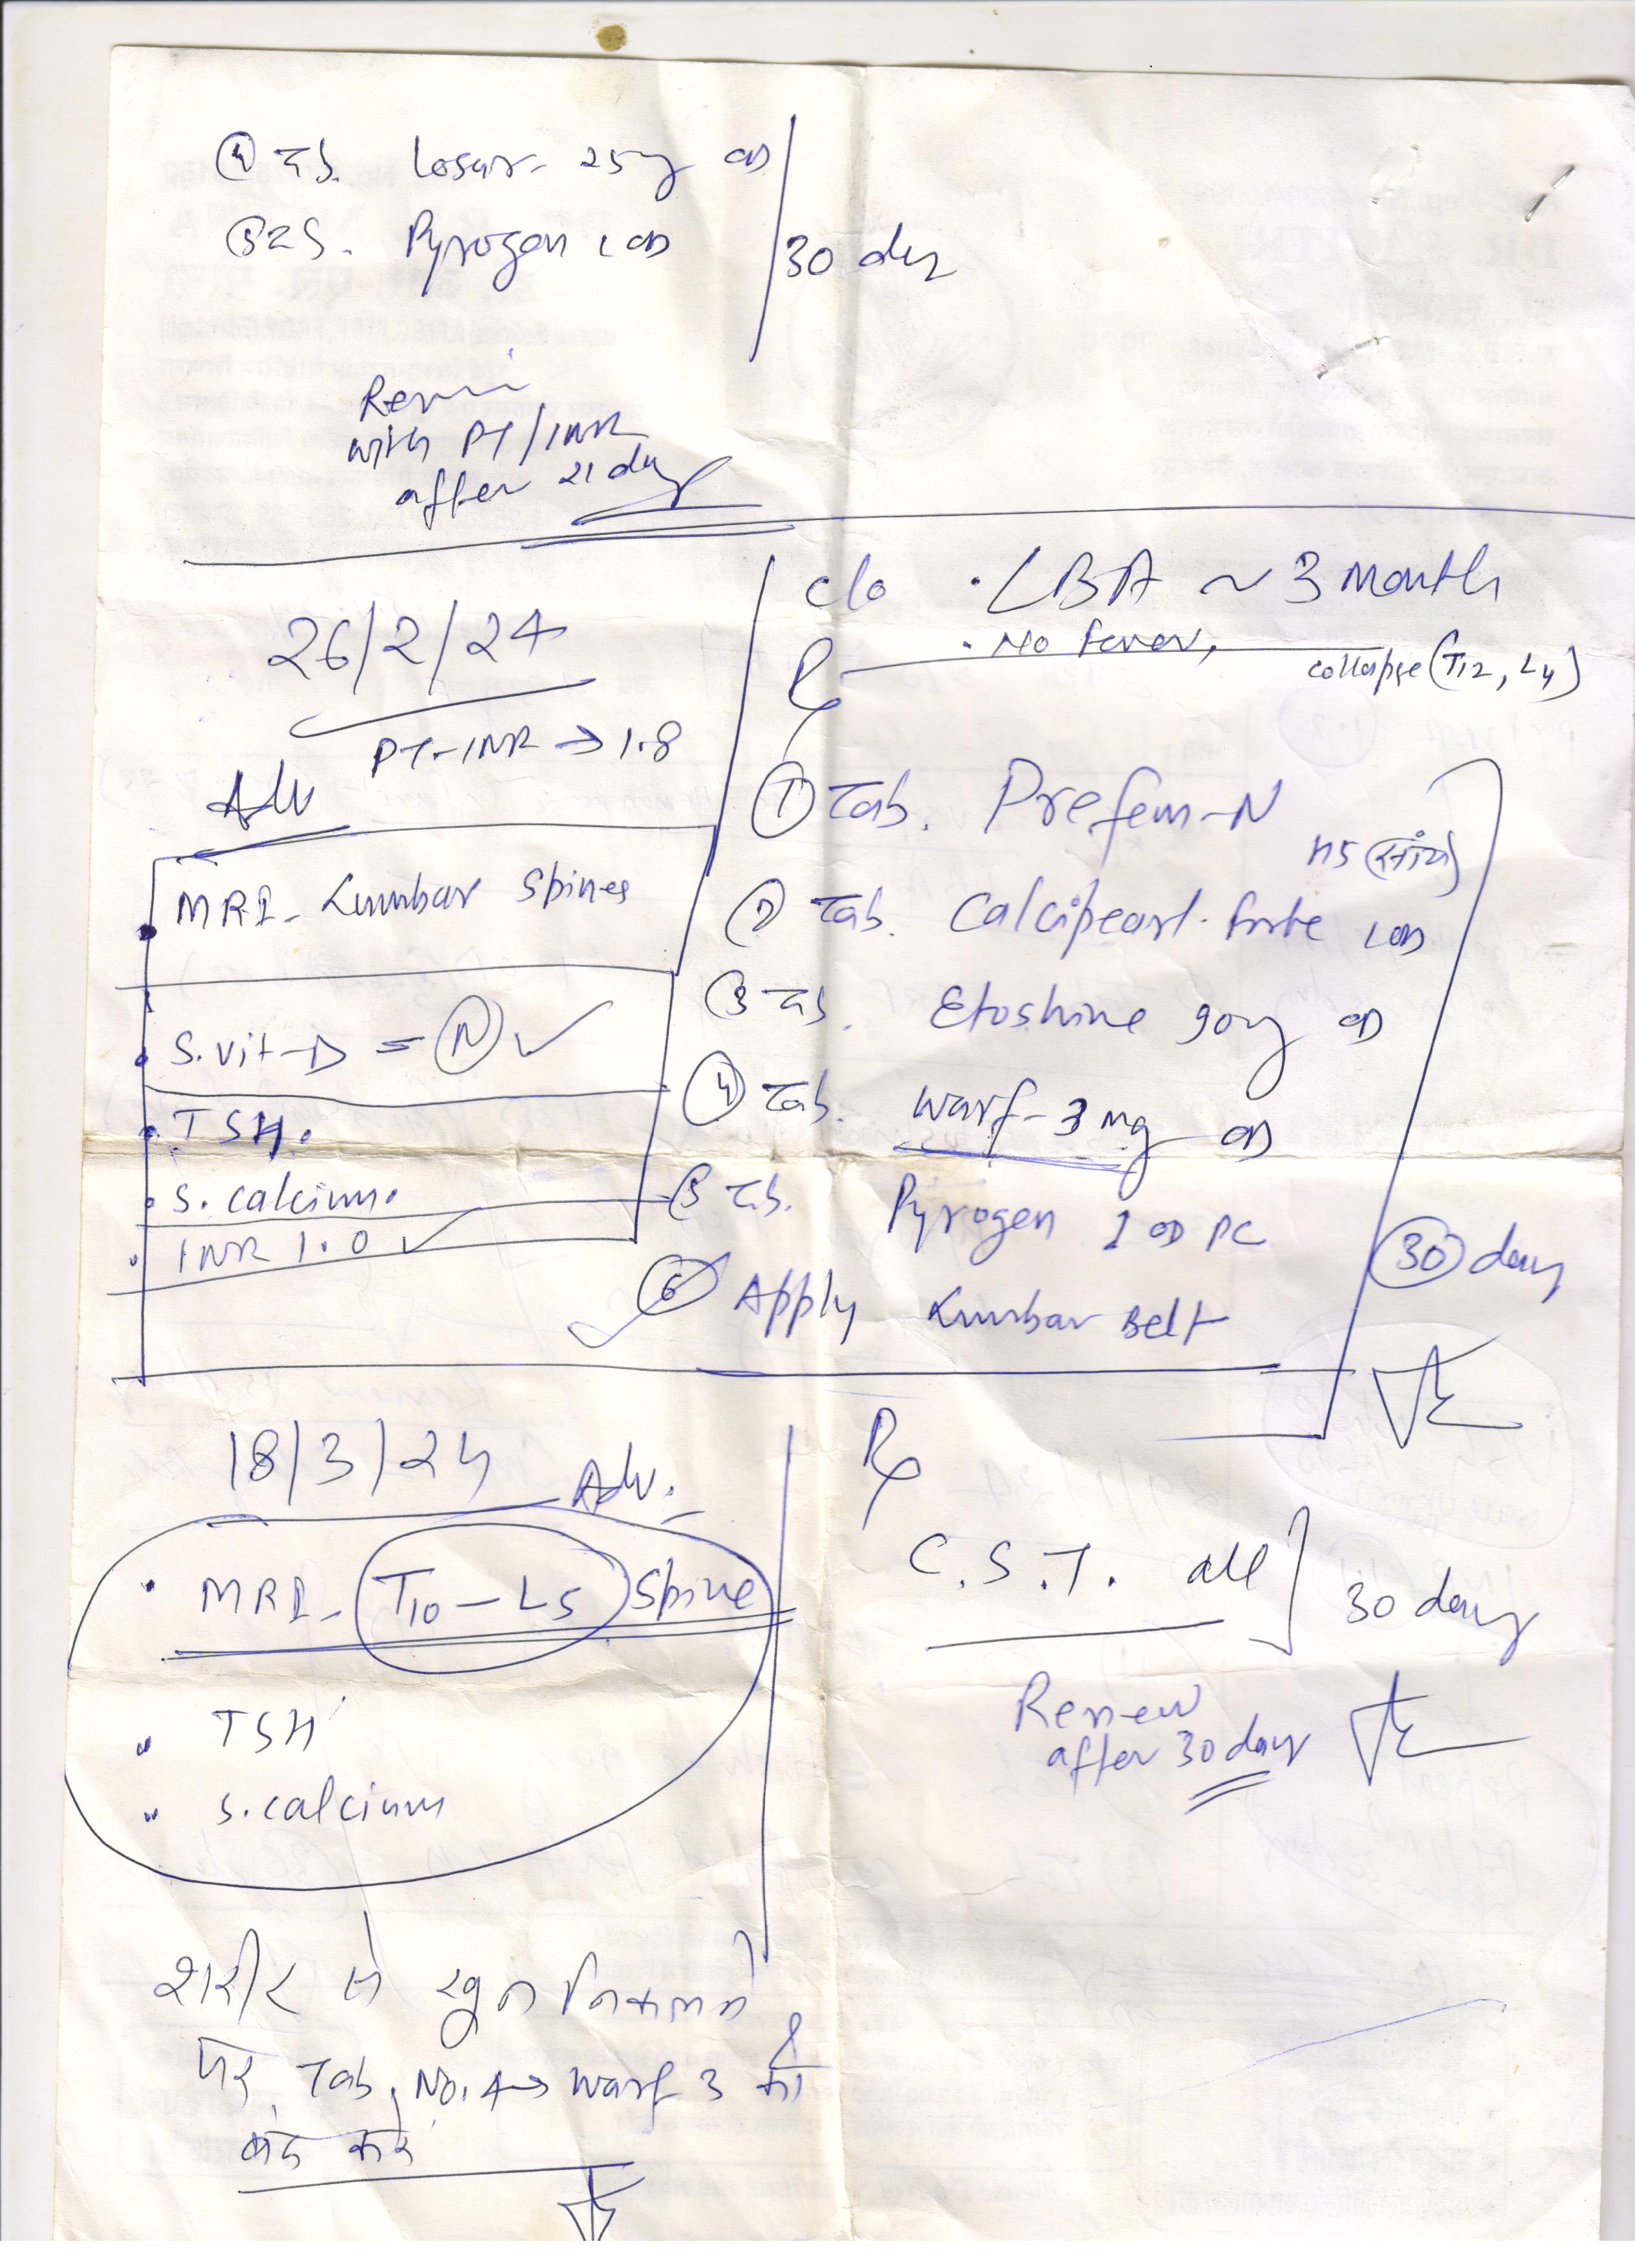 ④ Tab. Losar- 25mg OD
⑤ Tab. Pyrogen 1 OD
30 day
Review
with PT/INR
after 21 day
26/2/24
PT-INR → 1.8
Adv
MRI- Lumbar Spines
S. Vit-D = Ⓝ ✓
TSH.
S. calcium.
INR 1.0 ✓
c/o . LBA ~ 3 Month
. No fever,
collapse (T12, L4)
Rx
① Tab. Prefem-N
HS (रात)
② Tab. Calcipearl-forte 1 OD
③ Tab. Etoshine 90mg OD
④ Tab. Warf-3 mg OD
⑤ Tab. Pyrogen 1 OD PC
⑥ Apply Lumbar Belt
30 days
18/3/24
Adv.
MRI- T10-L5 Spine
TSH
S. calcium
Rx
C.S.T. all
30 days
Review
after 30 days
शरीर से खून निकलने
पर Tab. No. 4 → Warf 3 को
बंद करे